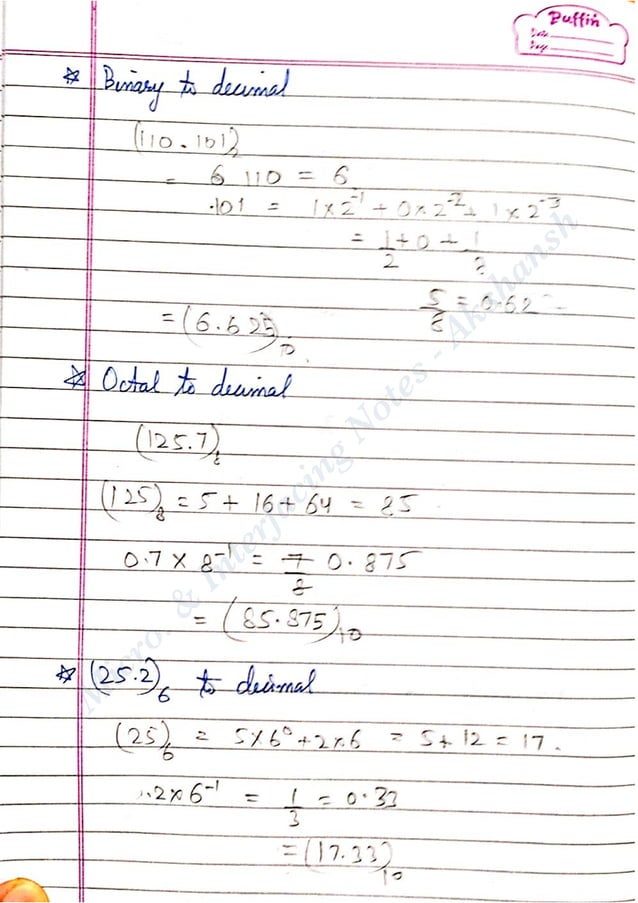 Puffin
Date
Page
☆ Binary to decimal
(110.101)₂
= 6 110 = 6
.101 = 1×2⁻¹ + 0×2⁻² + 1×2⁻³
= 1/2 + 0 + 1/8
5/8 = 0.62
= (6.625)₁₀
☆ Octal to decimal
(125.7)₈
(125)₈ = 5 + 16 + 64 = 85
0.7 × 8⁻¹ = 7/8 0.875
= (85.875)₁₀
☆ (25.2)₆ to decimal
(25)₆ = 5×6⁰ + 2×6 = 5+12 = 17.
.2×6⁻¹ = 1/3 = 0.33
= (17.33)₁₀
Micro. & Interfacing Notes - Akshansh